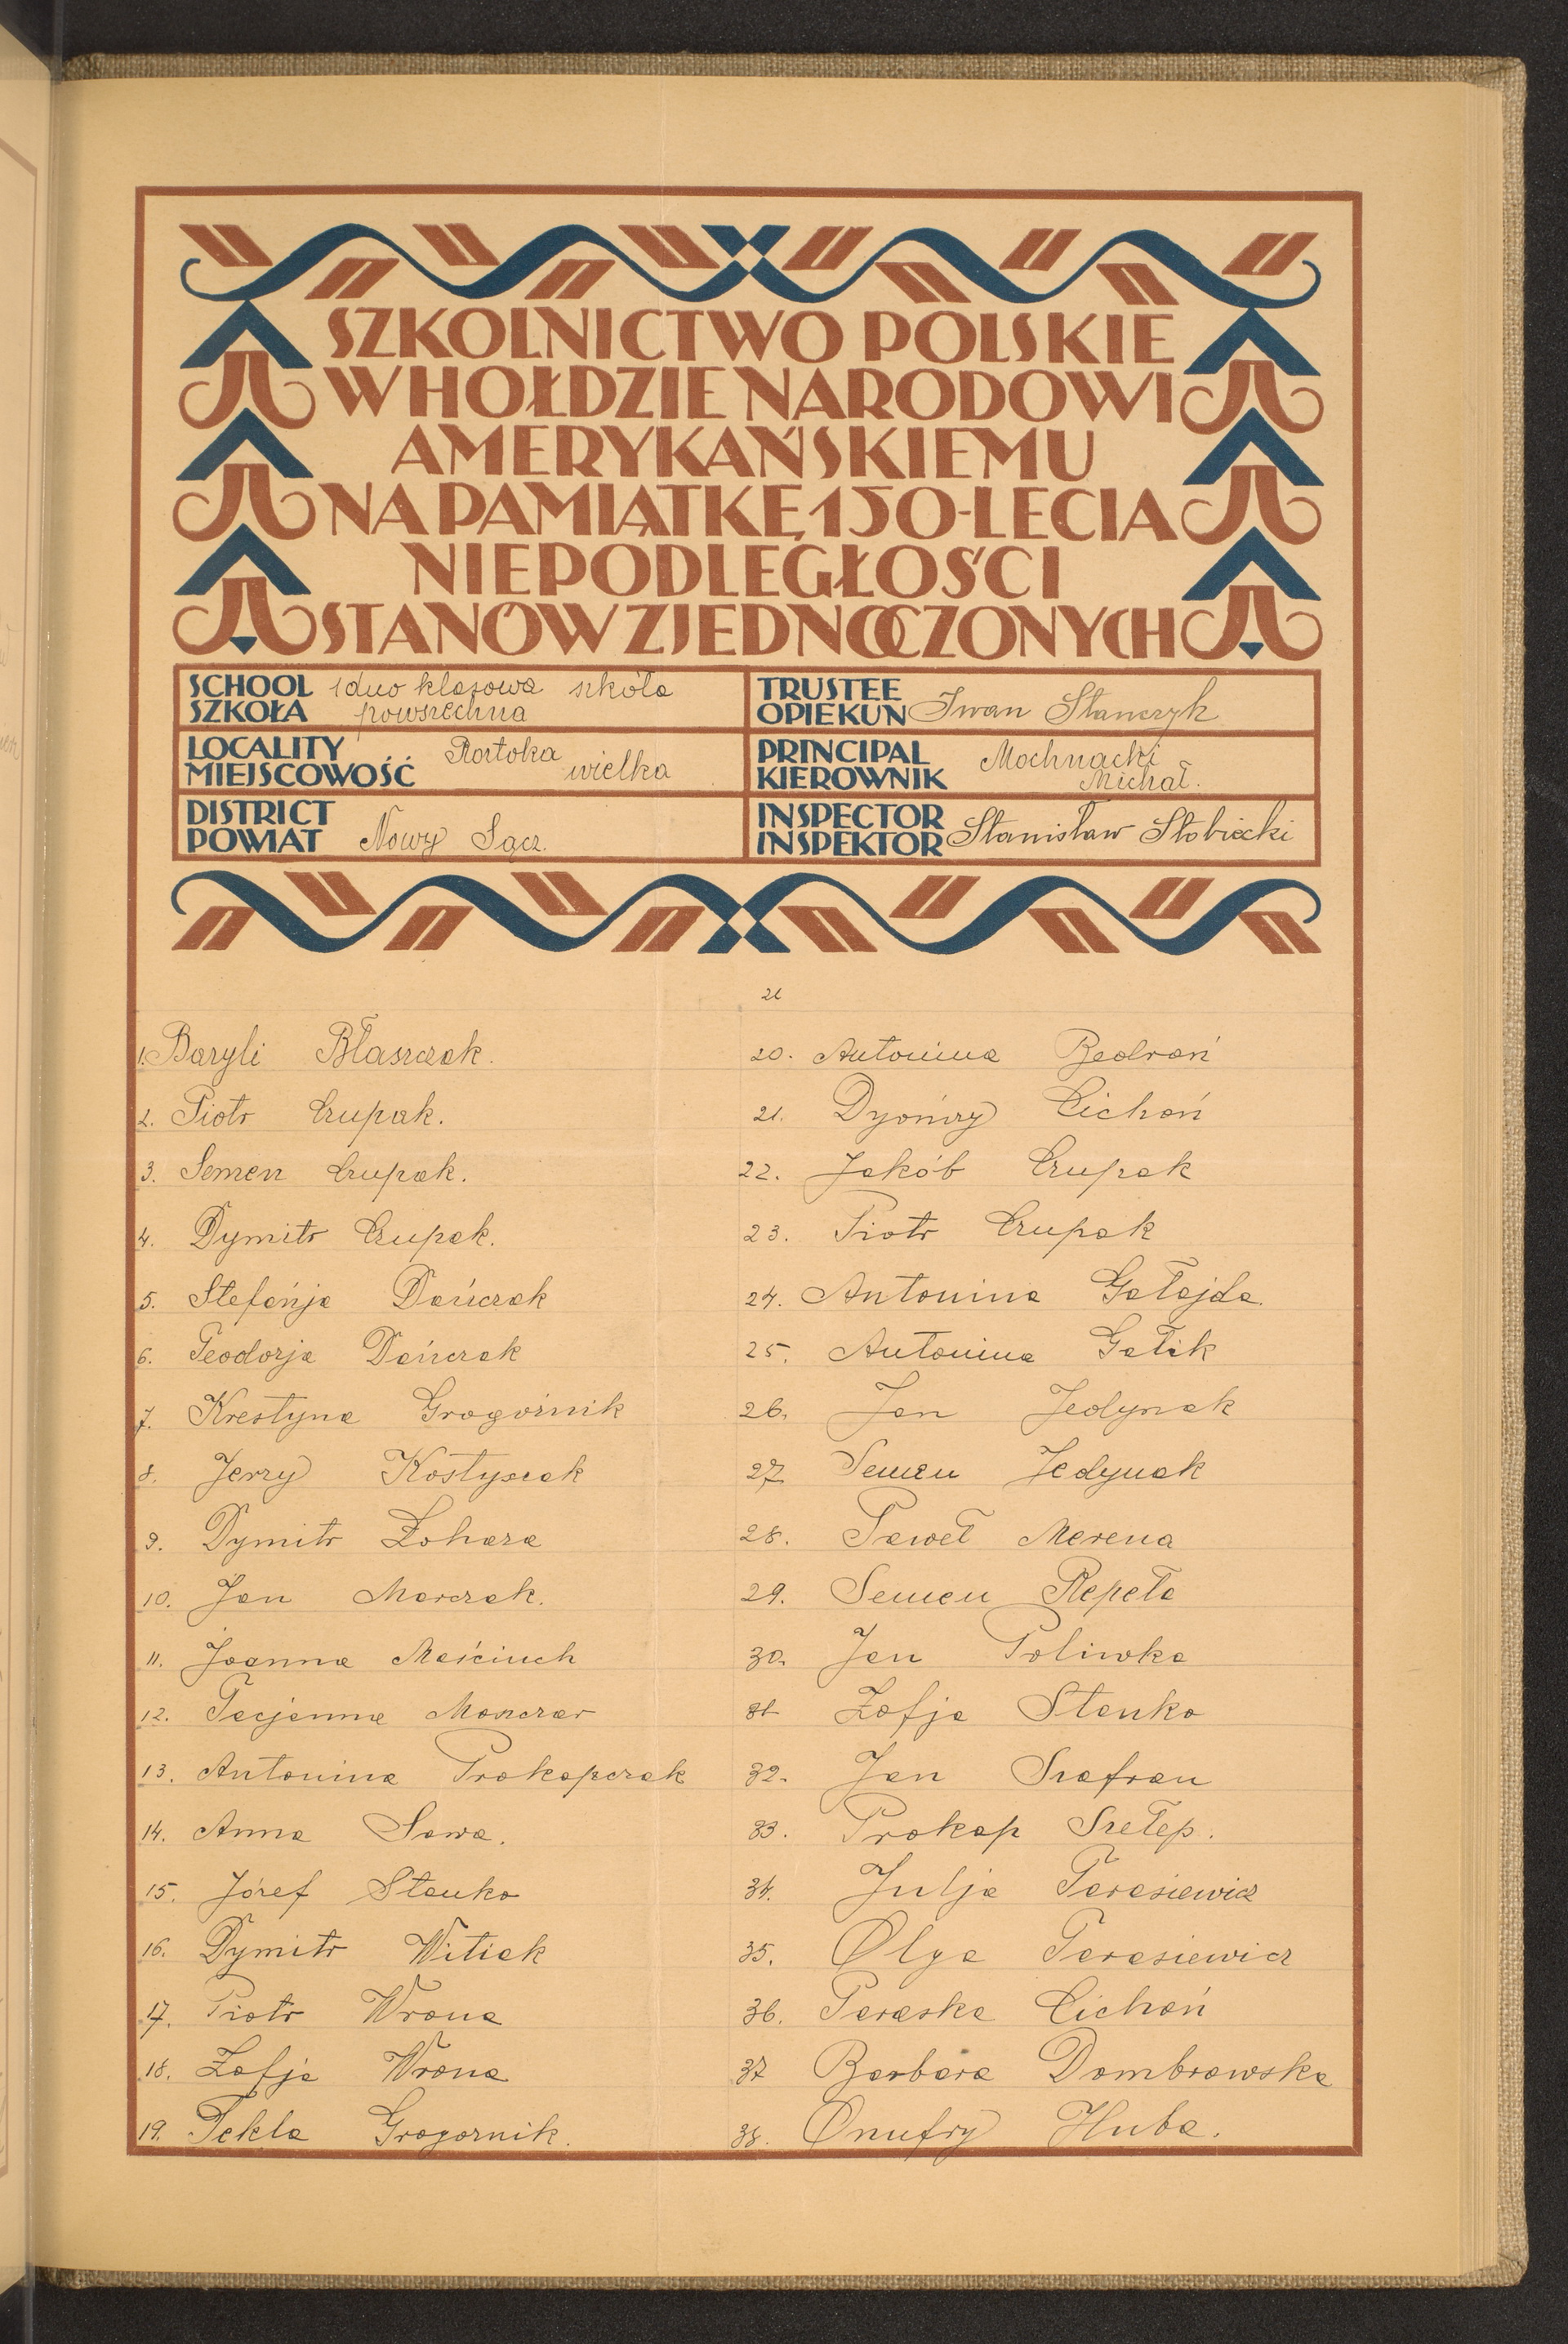 SZKOLNICTWO POLSKIE
W HOŁDZIE NARODOWI
AMERYKAŃSKIEMU
NA PAMIĄTKĘ 150-LECIA
NIEPODLEGŁOŚCI
STANÓW ZJEDNOCZONYCH
SCHOOL
SZKOŁA
klasowa szkóła
powszechna
TRUSTEE
OPIEKUN
Iwan Stanczyk
LOCALITY
MIEJSCOWOŚĆ
Roztoka
wielka
PRINCIPAL
KIEROWNIK
Mochnacki
Michał.
DISTRICT
POWIAT
Nowy Sącz.
INSPECTOR
INSPEKTOR
Stanisław Słobiecki
21
1. Baryli Błaszczak.
2. Piotr Czupak.
3. Semen Czupak.
4. Dymitr Czupak.
5. Stefańja Dańczak
6. Teodorja Dańczak
7. Krestyna Grogórnik
8. Jerzy Kostyszak
9. Dymitr Łohaza
10. Jan Marczak.
11. Joanna Maściuch
12. Tacjanna Moszczar
13. Antonina Prokopczak
14. Anna Sawa.
15. Józef Stanko
16. Dymitr Witiak
17. Piotr Wrona
18. Zofja Wrona
19. Tekla Grogornik.
20. Antonina Bedrań
21. Dyońizy Cichoń
22. Jakób Czupak
23. Piotr Czupak
24. Antonina Gałajda.
25. Antonina Galik
26. Jan Jedynak
27 Semen Jedynak
28. Paweł Merena
29. Semen Repeła
30. Jan Poliwka
31 Zofja Stanko
32. Jan Szafran
33. Prokop Szełep.
34. Julja Tarasiewicz
35. Olga Tarasiewicz
36. Paraska Cichoń
37 Barbara Dombrowska
38. Onufry Huba.